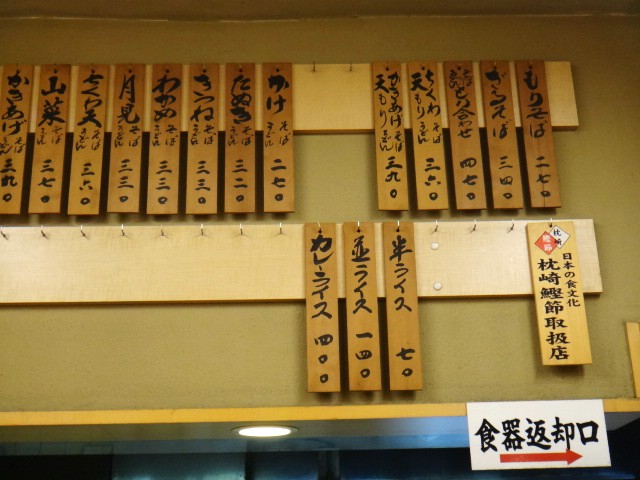 もりそば 二七〇
ざるそば 三四〇
四七〇
ちくわ天もり そば うどん 三六〇
かきあげ天もり そば うどん 三九〇
かけ そば うどん 二七〇
たぬき そば うどん 三二〇
きつね そば うどん 三三〇
わかめ そば うどん 三三〇
月見 そば うどん 三三〇
ちくわ天 そば うどん 三六〇
山菜 そば うどん 三七〇
かきあげ そば うどん 三九〇
半ライス 七〇
並ライス 一四〇
カレーライス 四〇〇
枕崎
鰹節
日本の食文化
枕崎鰹節取扱店
食器返却口